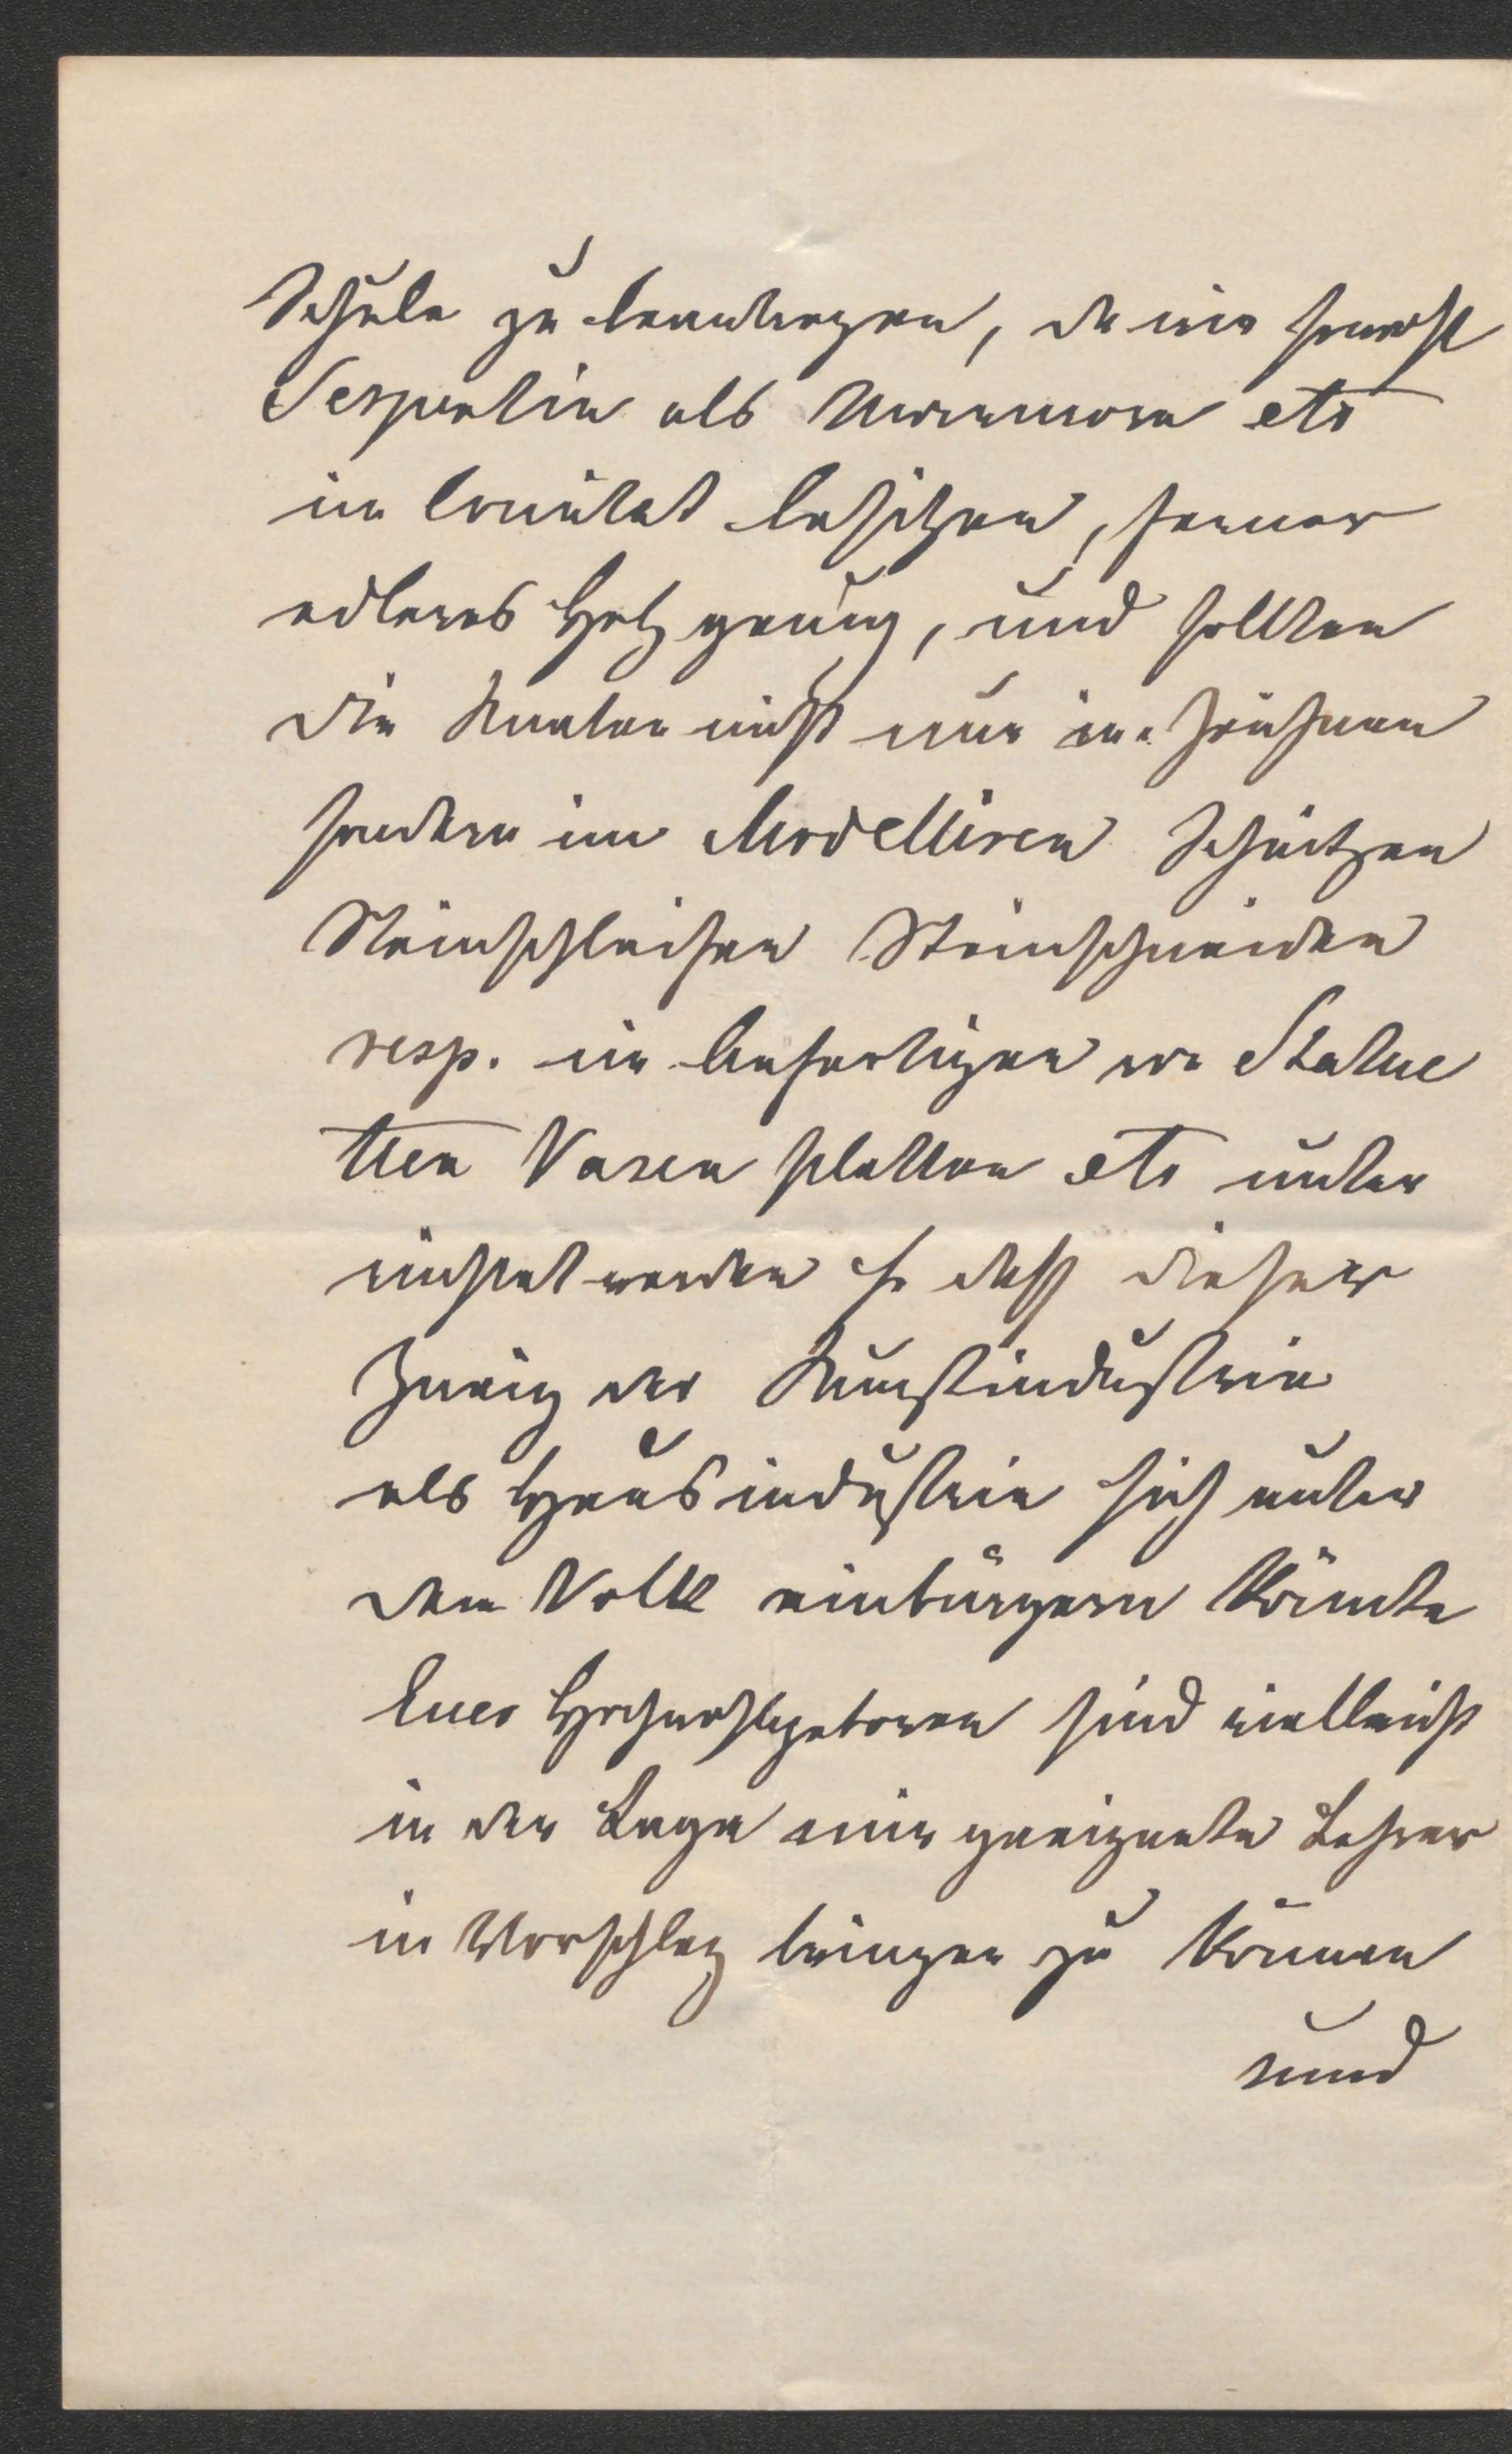 Schule zu beantragen, da wir sowohl
Serpentin als Marmore etc
im Comitat besitzen, ferner
edleres Holz genug, und sollten
die Knaben nicht nur im Zeichnen
sondern im Modelliren Schnitzen
Steinschleifen Steinschneiden
resp. im Anfertigen von Statue
tten Vasen Platten etc unter
richtet werden so daß dieser
Zweig der Kunstindustrie
als Hausindustrie sich unter
dem Volke einbürgern könnte
Euer Hochwohlgeboren sind vielleicht
in der Lage mir geeignete Lehrer
in Vorschlag bringen zu können
und